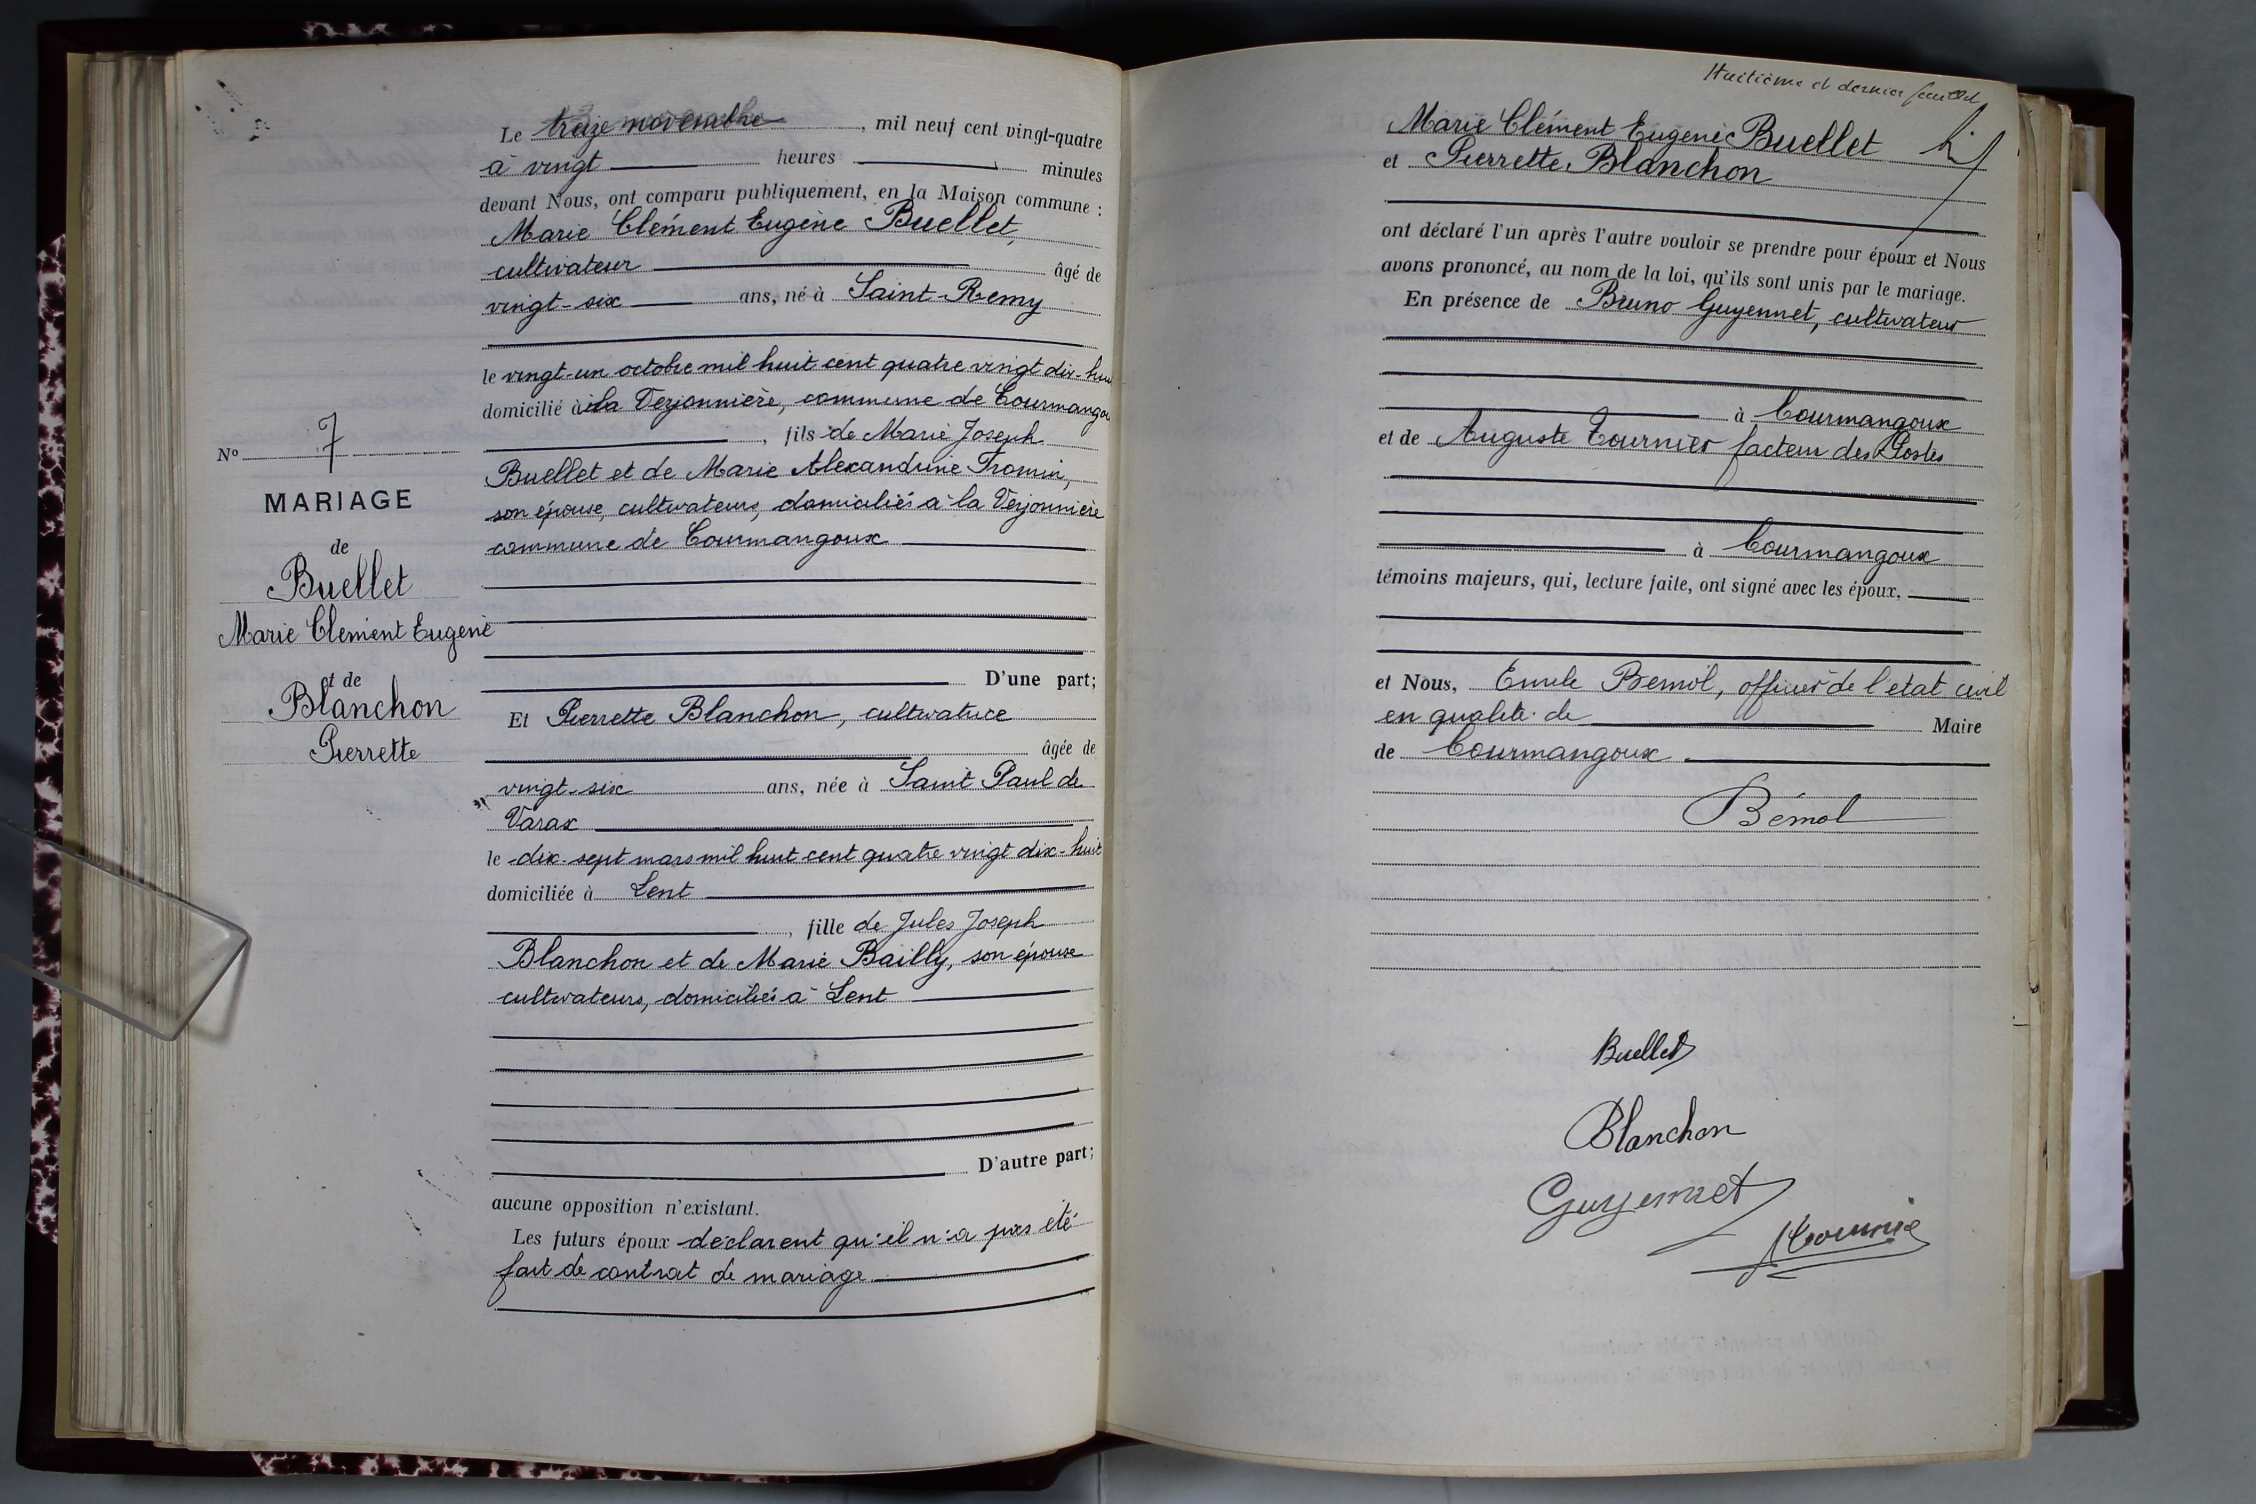 Le treize novembre, mil neuf cent vingt-quatre
à vingt heures minutes
devant Nous, ont comparu publiquement, en la Maison commune :
Marie Clément Eugène Buellet,
cultivateur âgé de
vingt-six ans, né à Saint-Remy
le vingt-un octobre mil huit cent quatre vingt dix-hui
domicilié à la Verjonnière, commune de Courmangou
, fils de Marie Joseph
Buellet et de Marie Alexandrine Fromin,
son épouse, cultivateurs, domiciliés à la Verjonnière
commune de Courmangoux
No 7
MARIAGE
de
Buellet
Marie Clement Eugène
et de
Blanchon
Pierrette
D'une part;
Et Pierrette Blanchon, cultivatrice
âgée de
vingt-six ans, née à Saint Paul de
Varax
le dix-sept mars mil huit cent quatre vingt dix-huit
domiciliée à Lent
, fille de Jules Joseph
Blanchon et de Marie Bailly, son épouse
cultivateurs, domiciliés à Lent
D'autre part;
aucune opposition n'existant.
Les futurs époux déclarent qu'il n'a pas été
fait de contrat de mariage
Huitième et dernier feuillet
Marie Clément Eugène Buellet
et Pierrette Blanchon
ont déclaré l'un après l'autre vouloir se prendre pour époux et Nous
avons prononcé, au nom de la loi, qu'ils sont unis par le mariage.
En présence de Bruno Guyennet, cultivateur
à Courmangoux
et de Auguste Tournier facteur des Postes
à Courmangoux
témoins majeurs, qui, lecture faite, ont signé avec les époux,
et Nous, Emile Bemol, officier de l'etat civil
en qualité de Maire
de Courmangoux
Bémol
Buellet
Blanchon
Guyennet
Tournier